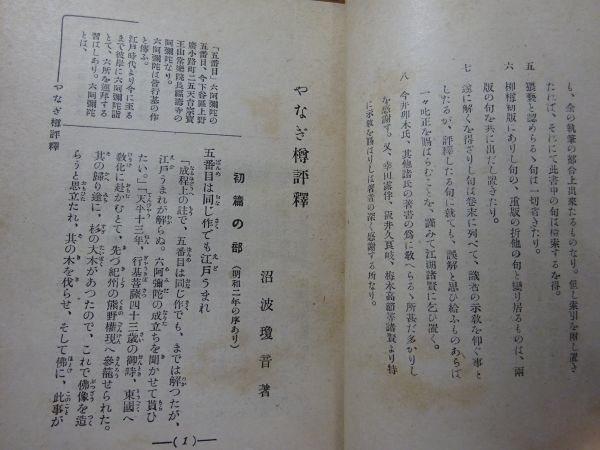 も、余の執筆の都合上出來たるものなり。但し索引を附し置き
たれば、それにて此書中の句は檢索するを得。
五　猥褻と認めらるゝ句は一切省きたり。
六　柳樽初版にありし句の、重版の折他の句と變り居るものは、兩
版の句を共に出だし置きたり。
七　遂に解くを得ざりし句は卷末に列べて、識者の示敎を仰ぐ事と
したるが、評釋したる句に就ても、誤解と思ひ給ふものあらば
一々叱正を賜はらむことを、謹みて江湖諸賢に乞ひ置く。
八　今井卯木氏、其他諸氏の著書の爲に敎へらるゝ所甚だ多かりし
を感謝す。又、幸田露伴、阪井久良岐、梅本高節等諸賢より特
に示敎を賜はりしは著者の深く感謝する所なり。
やなぎ樽評釋
沼波瓊音著
初篇の部（明和二年の序あり）
五番目は同じ作でも江戶うまれ
「成程上の註で、五番目は同じ作でも、までは解つたが、
江戶うまれが解らぬ。六阿彌陀の成立ちを聞かせて貰ひ
たい。」「天平十三年、行基菩薩四十三歲の御時、東國へ
敎化に赴かむとて、先づ紀州の熊野權現へ參籠せられた。
其の歸り途に、杉の大木があつたので、これで佛像を造
らうと思立たれ、其の木を伐らせ、そして佛に、此事が
「五番目」六阿彌陀の
五番目、今下谷區上野
廣小路町二五天台宗寶
王山常樂院長福壽寺の
阿彌陀なり。
六阿彌陀は皆行基の作
と傳ふ。
江戶時代より今に至る
まで彼岸に六阿彌陀詣
とて、六所を巡拜する
習はしあり。六阿彌陀
とは、
やなぎ樽評釋
(1)